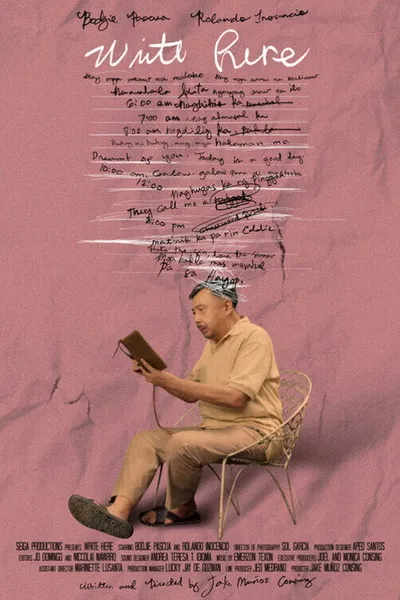 Bodjie Pascua Rolando Inocencio
Write Here
Ang mga araw na malabo Ang mga araw na
Naaalala kita ngayong araw na ito
6:00 am Nagbihis ka
7:00 am, nag almusal ka
8:00 am nagdilig ka
Buhay na buhay ang mga halaman mo.
Dreamt of you. Today is a good day.
10:00 am. Galaw-galaw para di ma stroke
12:00 Naghugas ka ng pinggan
They call me a
2:00 pm
matinik ka pa rin Eddie
mas
pa sa Hayop.
SEIGA PRODUCTIONS PRESENTS WRITE HERE STARRING BODJIE PASCUA AND ROLANDO INOCENCIO DIRECTOR OF PHOTOGRAPHY SOL GARCIA PRODUCTION DESIGNER APED SANTOS
EDITORS JD DOMINGO AND NICCOLAI NAVARRO SOUND DESIGNER ANDREA TERESA T. IDIOMA MUSIC BY EMERZON TEXON EXECUTIVE PRODUCERS JOEL AND MONICA CONSING
ASSISTANT DIRECTOR MARINETTE LUSANTA PRODUCTION MANAGER LUCKY JAY DE GUZMAN LINE PRODUCER JED MEDRANO PRODUCER JAKE MUÑOZ CONSING
Written and Directed by Jake Muñoz Consing